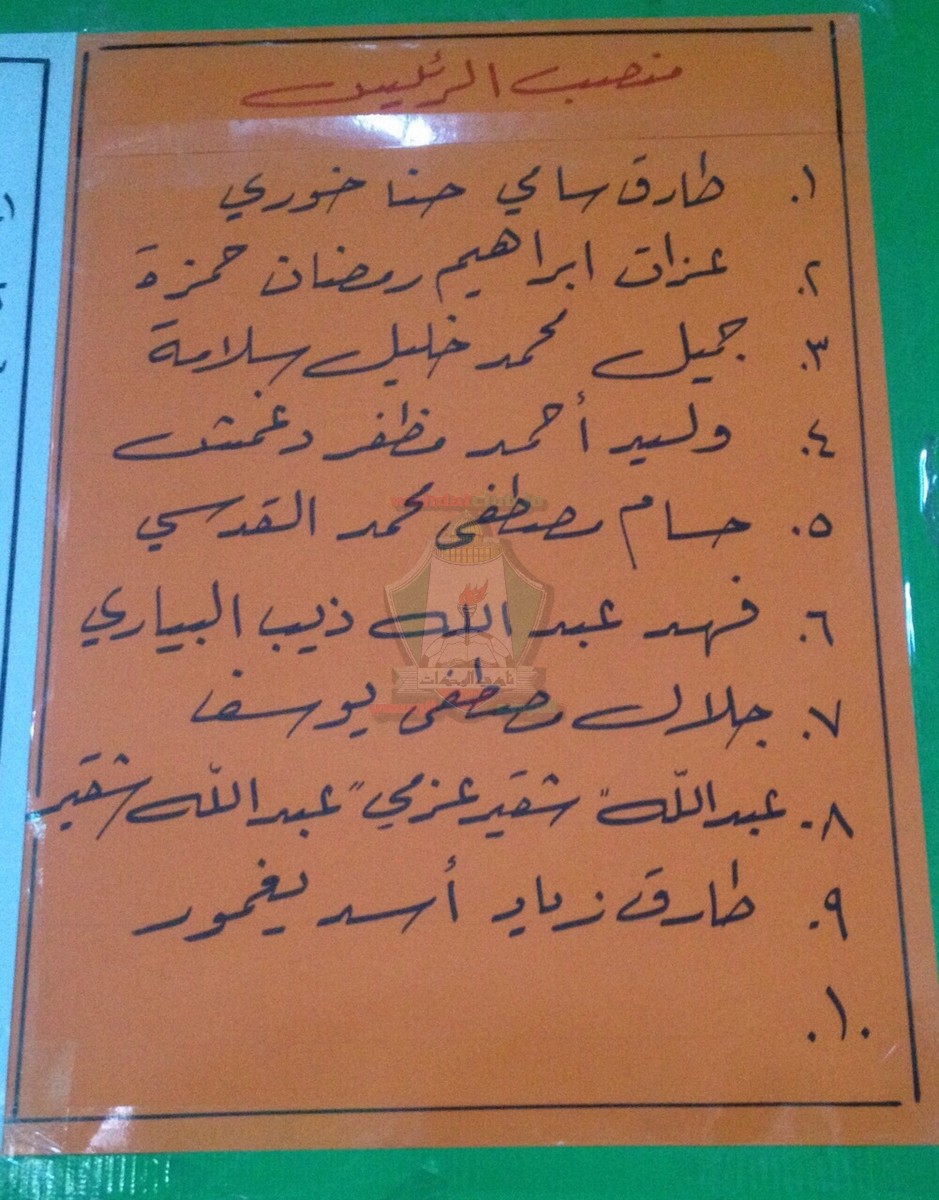 منصب الرئيس
١. طارق سامي حنا خوري
٢. عزات ابراهيم رمضان حمزة
٣. جميل محمد خليل سلامة
٤. وليد أحمد مظفر دغمش
٥. حسام مصطفى محمد القدسي
٦. فهد عبد الله ذيب البياري
٧. جلال مصطفى يوسف
٨. عبدالله "شقير عزمي" عبدالله شقير
٩. طارق زياد أسد يغمور
١٠.